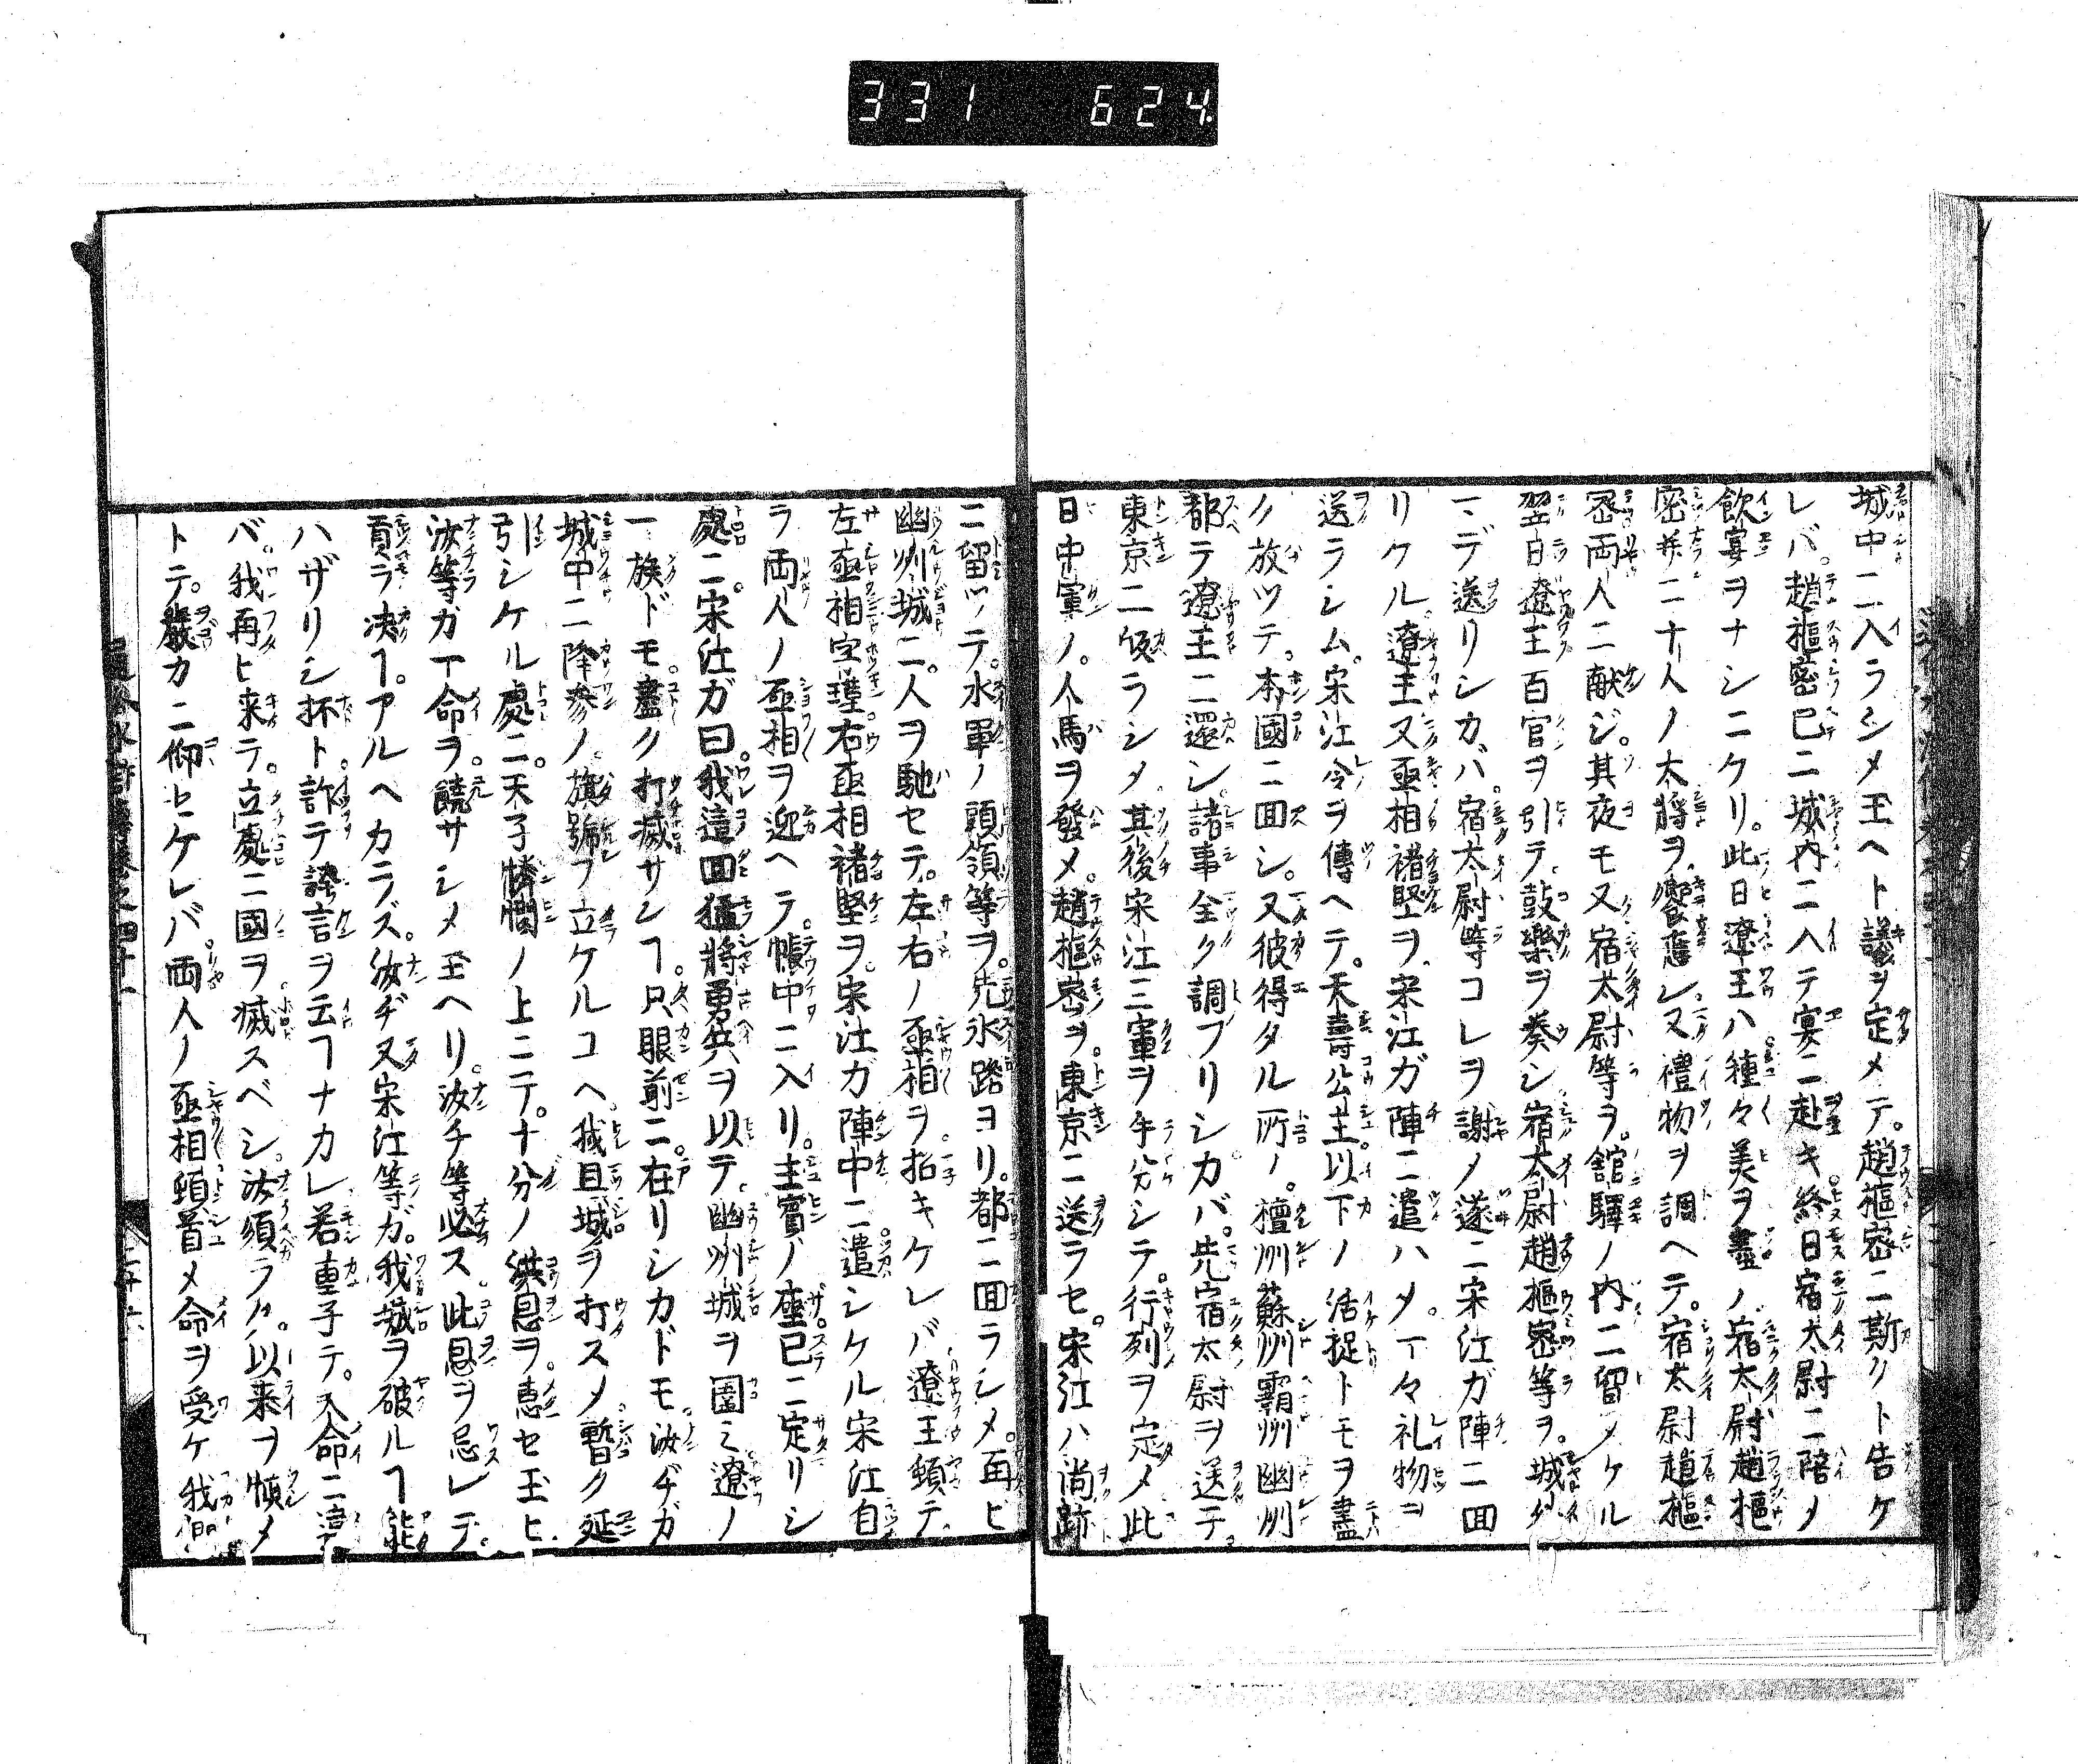 331 624
城中ニ入ラシメ玉ヘト議ヲ定メテ。趙樞密ニ斯クト告ケ
レバ。趙樞密已ニ城内ニ入テ宴ニ赴キ終日宿太尉ニ陪メ
飲宴ヲナシニケリ。此日遼王ハ種々美ヲ盡ノ宿太尉趙樞
密并ニ十人ノ太將ヲ饗應シ又禮物ヲ調ヘテ。宿太尉趙樞
密両人ニ献ジ。其夜モ又宿太尉等ヲ。舘驛ノ内ニ留メケル
翌日遼王百官ヲ引テ鼓樂ヲ奏シ宿太尉趙樞密等ヲ。城外
マデ送リシカバ。宿太尉等コレヲ謝ノ遂ニ宋江ガ陣ニ回
リケル遼王又亟相褚堅ヲ宋江ガ陣ニ遣ハメ。一々礼物ヲ
送ラシム。宋江令ヲ傳ヘテ。天壽公主以下ノ活捉トモヲ盡
ク放ツテ。本國ニ回シ。又彼得タル所ノ。檀州蘇州霸州幽州
都テ遼王ニ還シ。諸事全ク調ブリシカバ。先宿太尉ヲ送テ。
東京ニ皈ラシメ。其後宋江三軍ヲ手分シテ。行列ヲ定メ此
日中軍ノ。人馬ヲ發メ。趙樞密ヲ。東京ニ送ラセ。宋江ハ尚跡
ニ留ツテ。水軍ノ頭領等ヲ。先水路ヨリ。都ニ回ラシメ。再ヒ
幽州城ニ。人ヲ馳セテ。左右ノ亟相ヲ。招キケレバ遼王頓テ。
左亟相字瑾右亟相褚堅ヲ。宋江ガ陣中ニ遣シケル宋江自
ラ両人ノ亟相ヲ迎ヘテ。帳中ニ入リ。主賓ノ座已ニ定リシ
處ニ。宋江ガ曰。我這回猛將勇兵ヲ以テ。幽州城ヲ圍ミ遼ノ
一族ドモ。盡ク打滅サンヿ。只眼前ニ。在リシカドモ汝ヂガ
城中ニ降参ノ旗號ヲ立ケルコヘ。我且城ヲ打スメ暫ク延
引シケル處ニ。天子憐憫ノ上ニテ。十分ノ洪恩ヲ。惠セ玉ヒ
汝等カ一命ヲ。饒サシメ玉ヘリ。汝チ等必ス此恩ヲ忘レテ。
貢ラ决ヿ。アルヘカラズ。汝ヂ又宋江等ガ。我城ヲ破ルヿ能
ハザリシ抔ト。詐テ誇言ヲ云ヿナカレ若重子テ。天命ニ違
バ。我再ヒ来テ。立處ニ國ヲ滅スベシ。汝須ラク。以来ヲ愼メ
トテ。嚴カニ仰セケレバ両人ノ亟相頓首メ命ヲ受ケ我們